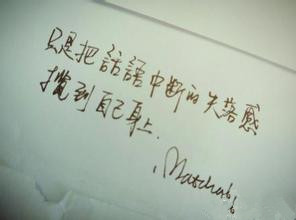 只是把話語中斷的失落感
攬到自己身上.